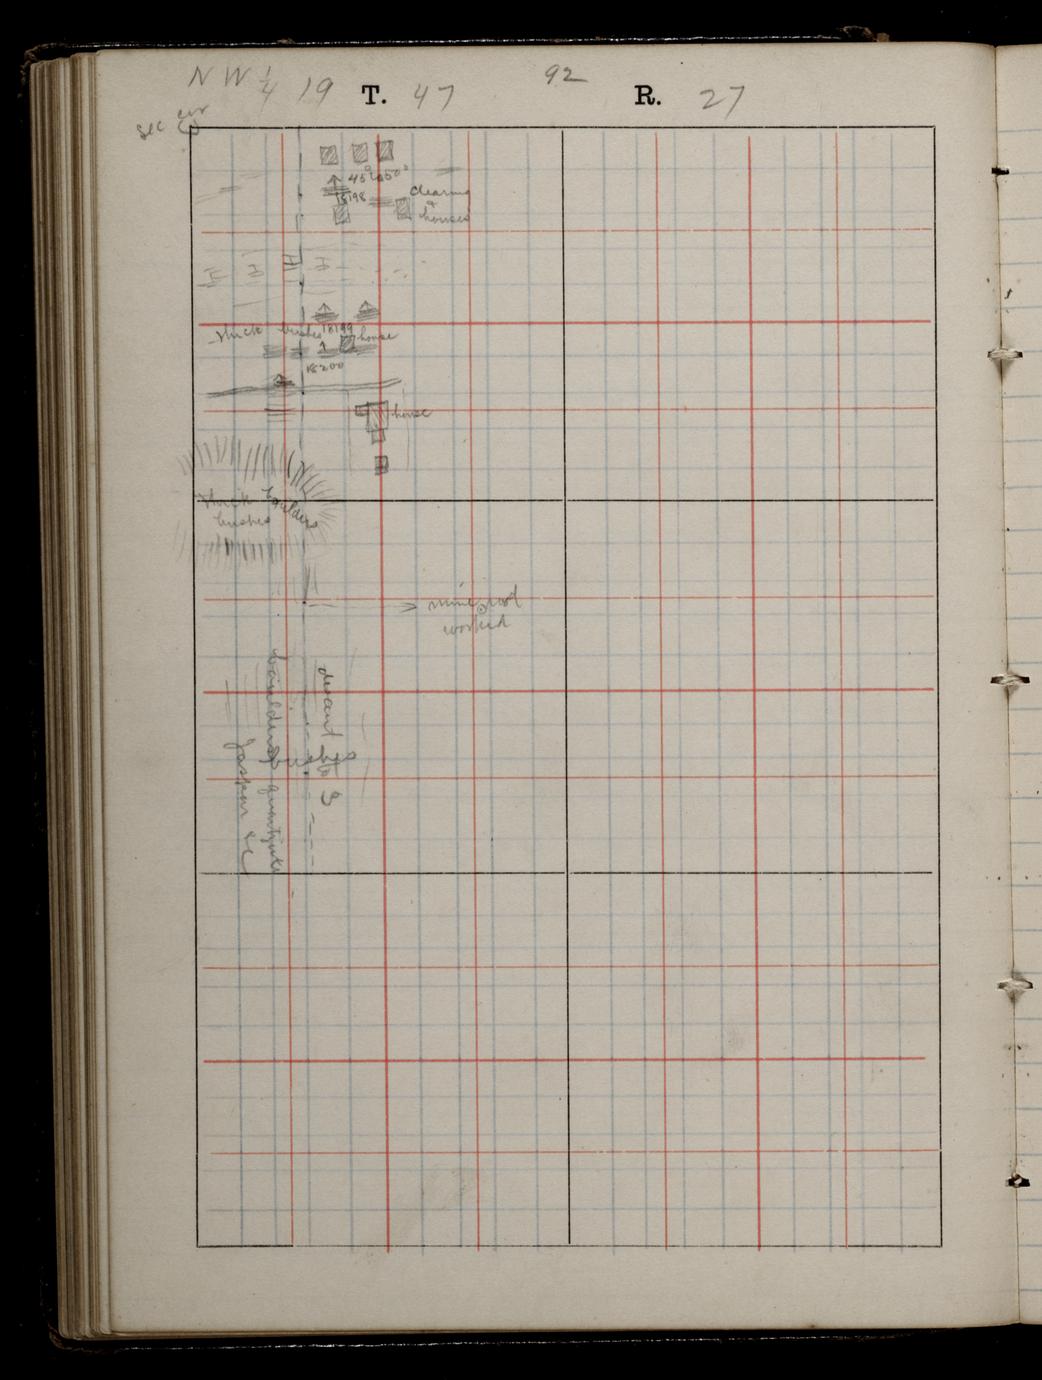 92
NW 1/4 19 T. 47 R. 27
Sec cor
45° to 50°
18198
clearing
&
houses
thick bushes
18199
house
18200
house
thick
bushes
boulders
mine not
worked
bushes
boulders & quartzite
Jasper &c